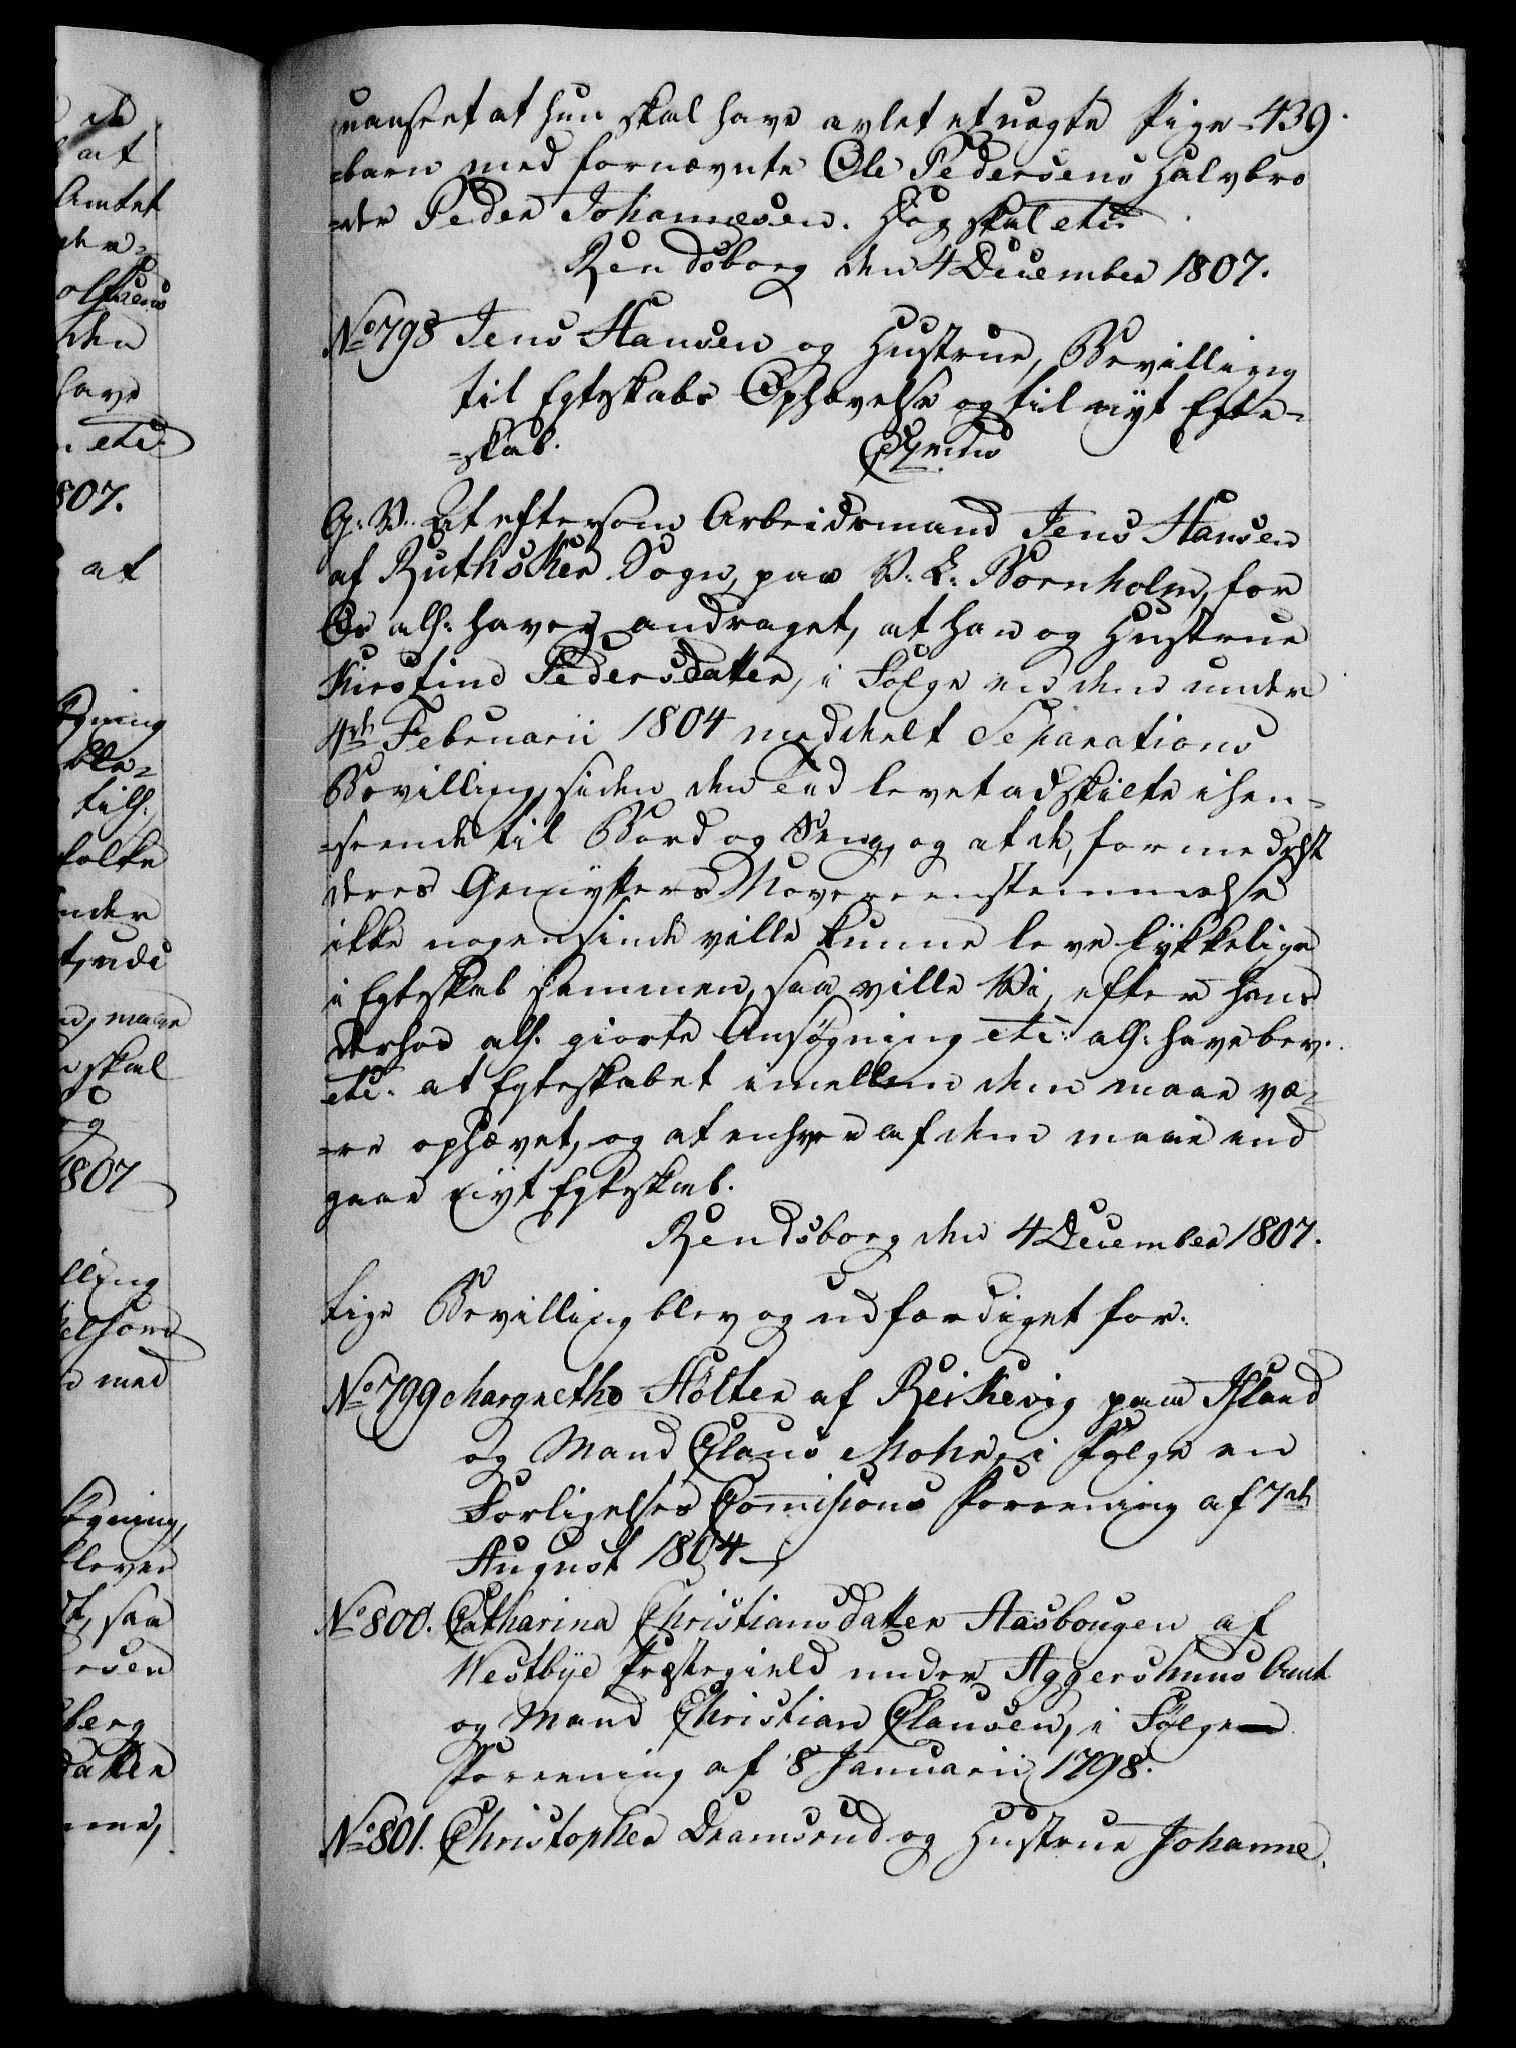 uanseet at hun skal have avlet et uægte Pige- 439.
=barn med fornævnte Ole Pedersens Halvbro
=der Peder Johannesen. Dog skal etc:
Rendsborg den 4 December 1807.
No 798 Jens Hansen og Hustrue, Bevilling
til Egteskabs Ophævelse og til nyt Egte=
=skab.
G: V: At eftersom Arbeidsmand Jens Hansen
af Ruthsker Sogn, paa V: L: Bornholm, for
Os all: haver andraget, at han og Hustrue
Kirstine Pedersdatter, i Følge en dem under
4de Februarii 1804 meddeelt Separations
Bevilling, siden den Tid levet adskilte i hen=
=seende til Bord og Seng, og at de, formedelst
deres Gemytters Uovereenstemmelse
ikke nogensinde ville kunne leve lykkelige
i Egteskab sammen, saa ville Vi, efter hans
derhos all. giorte Ansøgning etc: all: have bev.
etc. at Egteskabet imellem dem maae væ=
=re ophævet, og at enhver af dem maae ind
gaae nyt Egteskab.
Rendsborg den 4 December 1807.
Lige Bevilling blev og udfærdiget for:
No 799 Margrethe Hølter af Reikevig paa Island
og Mand Claus Mohr, i Følge en
Forligelses Commissions Forening af 7de
August 1804
No 800. Catharina Christiansdatter Aasbougen af
Westbye Præstegield under Aggershuus Amt
og Mand Christian Clausen, i Følge
Forening af 8 Januarii 1798.
No 801. Christopher Dramsrud og Hustrue Johanne